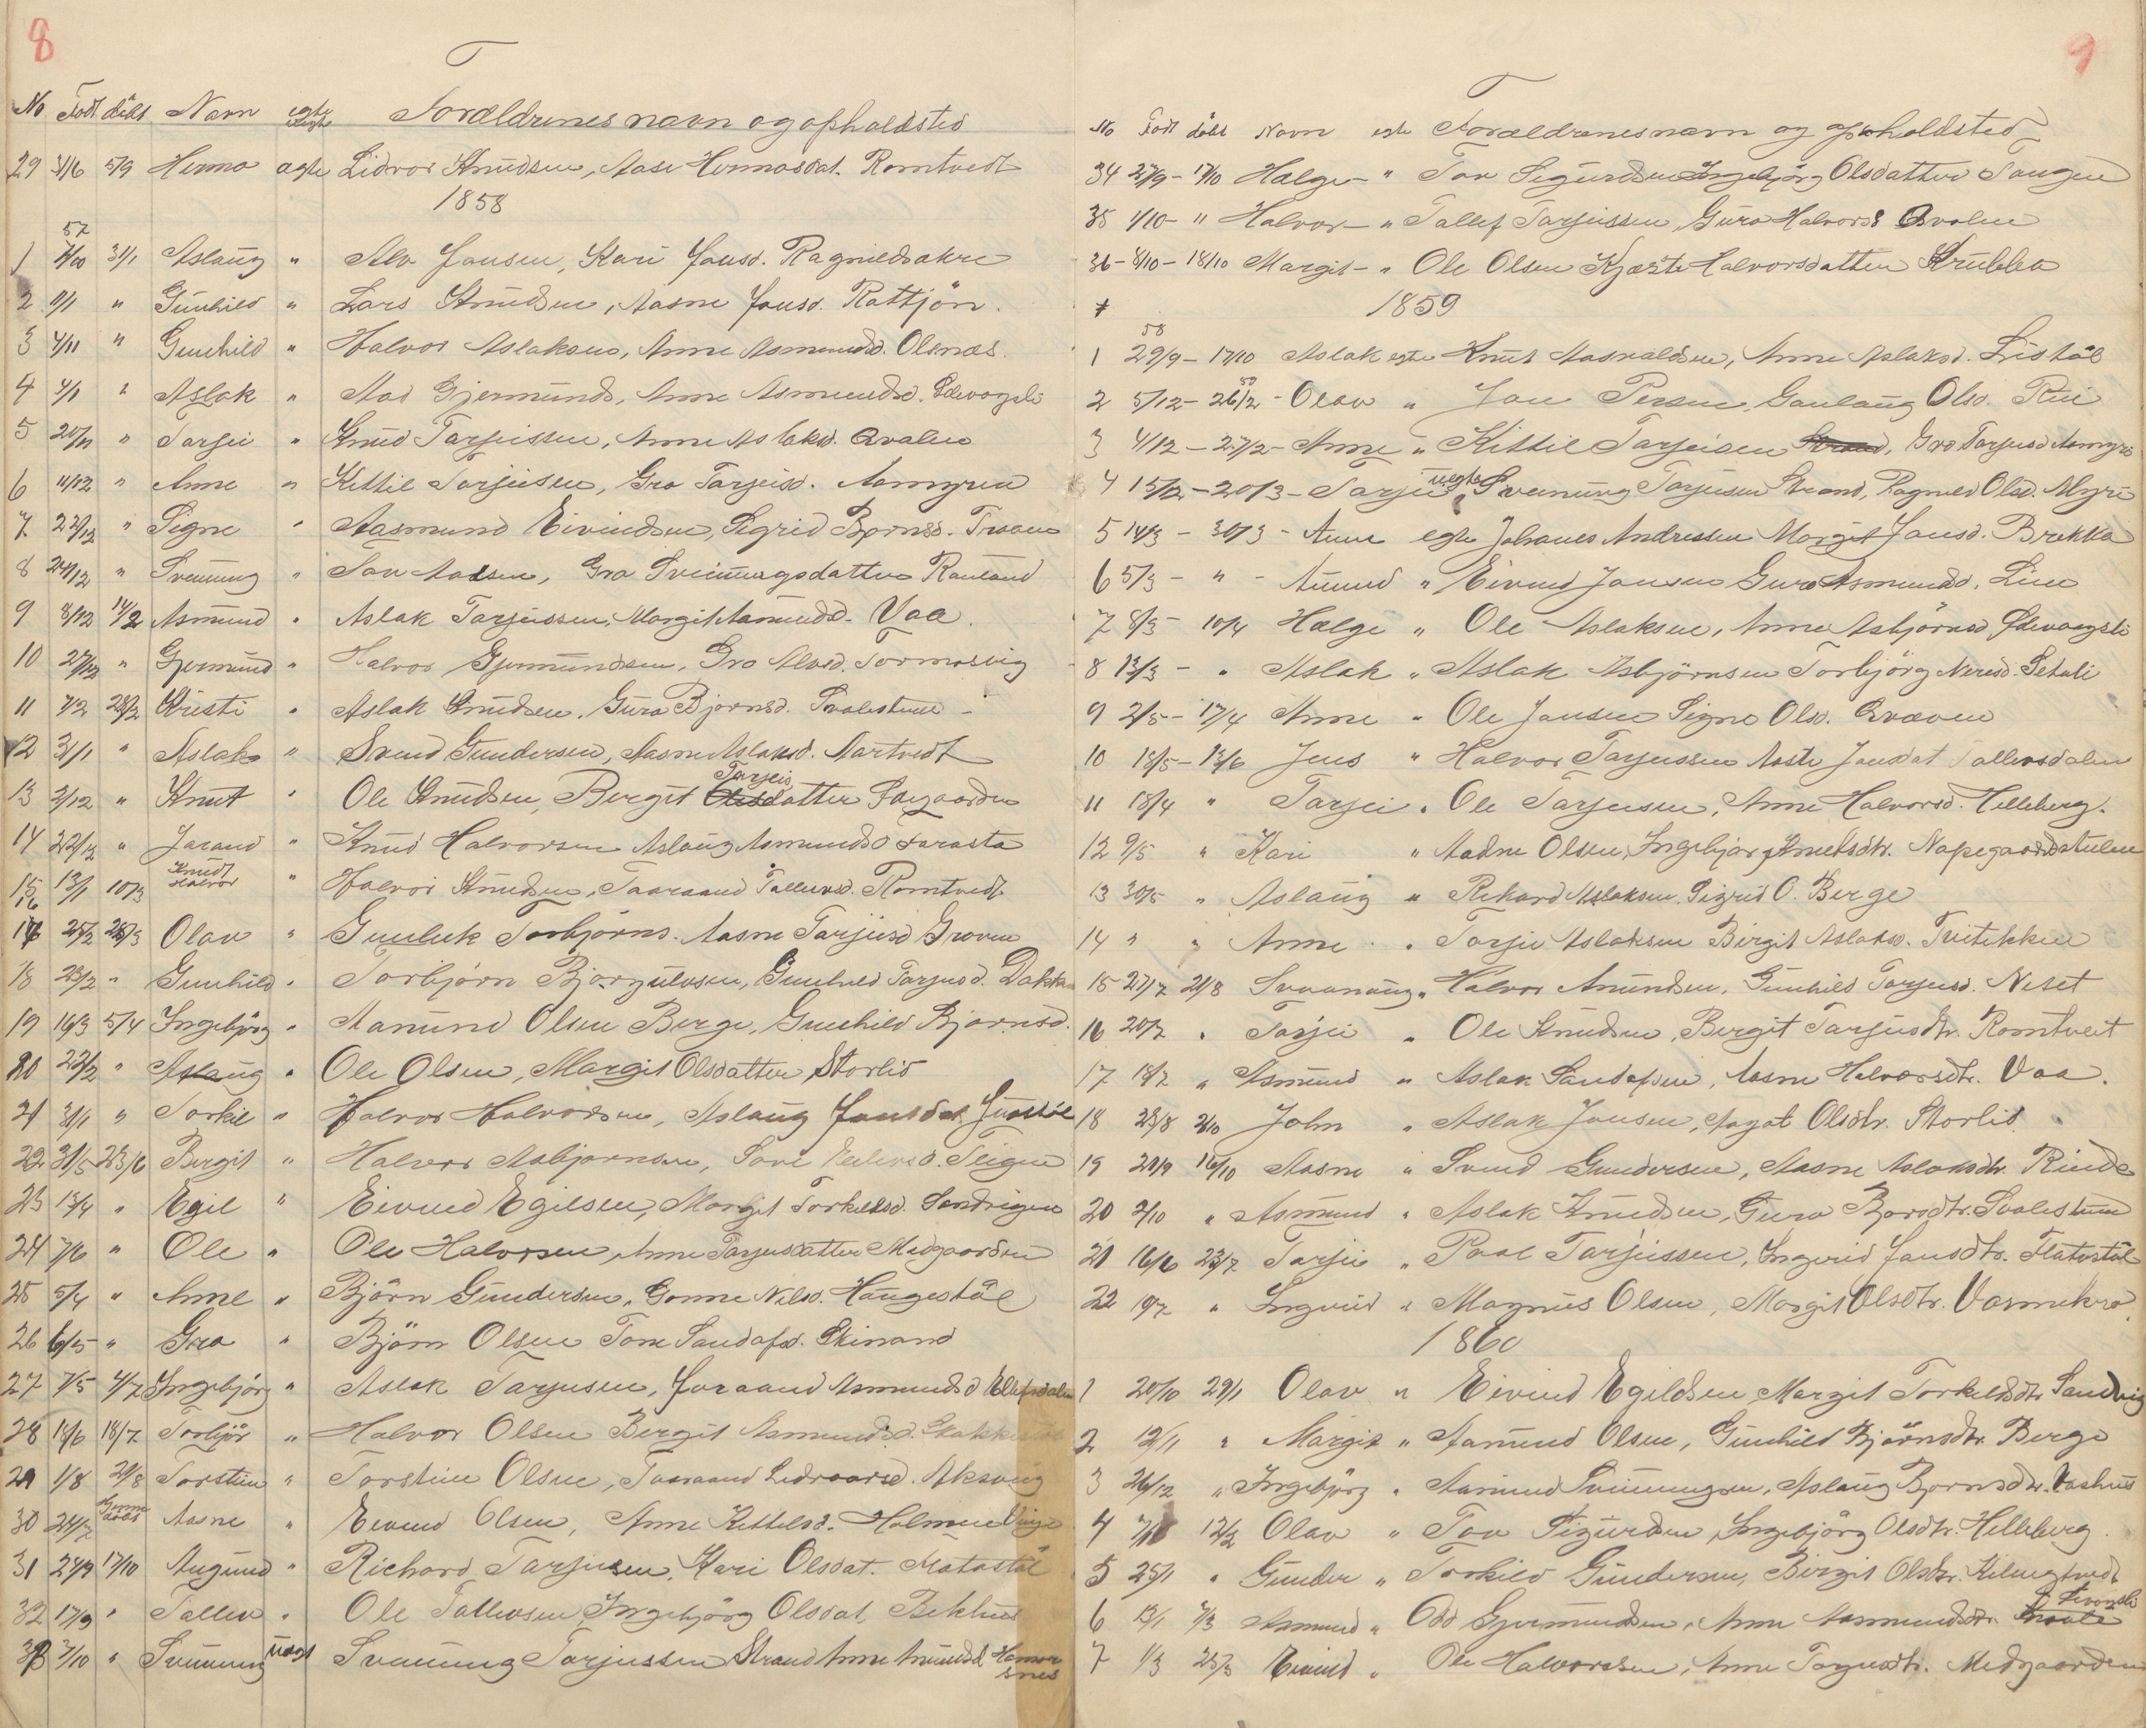 8
T
No Født døbt Navn egte uegte Forældrenes navn og opholdsted
29 3/6 5/9 Hermo egte Lidvor Knudsen, Aase Hermosdat. Romtvedt
1858
57
1 31/1 Aslaug " Alv Jonsen, Kari Jonsd. Ragnildsakre
2 9/1 " Gunhild " Lars Knudsen, Aasne Jonsd. Rottjön.
3 4/11 " Gunhild " Halvor Aslaksen, Anne Asmundsd. Olsnæs.
4 4/1 " Aslak " Aad Gjermunds, Anne Asmundsd.
5 20/11 " Tarjei " Knud Tarjeissen, Anne Aslaksd. Qvalen
6 11/12 " Anne " Kittil Tarjeisen, Gro Tarjeisd. Aamyren
7 22/12 " Signe " Aasmund Eivindsen, Sigrid Bjørnsd. Troan
8 24/12 " Svenung " Tov Aadsen, Gro Sveinungsdatter Rauland
9 8/12 14/2 Asmund " Aslak Tarjeissen, Margit Aamundsd. Vaa.
10 27/12 " Gjermund " Halvor Gjermundsen, Gro Alvsd. Tormosvig
11 7/2 28/2 Kristi " Aslak Knudsen, Guro Bjornsd. Svalestuen
12 3/1 " Aslak " Svend Gundersen, Aasne Aslaksd. Nartvedt
13 2/12 " Knut " Ole Knudsen, Bergit Tarjeis Olesdatter
14 22/12 " Jarand " Knud Halvorsen Aslaug Asmundsd
15 13/1 10/3 Knudt Halvor " Halvor Knudsen, Taaraand Tallevsd. Romtvedt
16 25/2 28/3 Olav " Gunluk Torbjörns. Aasne Tarjeisd Groven
18 23/2 " Gunhild " Torbjörn Bjørgulvsen, Gunhild Tarjeisd.
19 16/3 5/4 Ingebjörg " Aamund Olsen Berge, Gunhild Bjørnsd.
20 22/2 " Aslaug " Ole Olsen, Margit Olsdatter Storlid
21 31/1 " Torkil " Halvor Halvorsen, Aslaug Jonsdat.
22 31/5 23/6 Bergit " Halvor Asbjørnsen, Teigen
23 13/4 " Egil " Eivind Egilsen, Margit Torkilsd. Sandvigen
24 7/6 " Ole " Ole Halvorsen, Anne Tarjeisdatter Midgaarden
25 5/4 " Anne " Björn Gundersen, Gonne Nilsd. Haugestöl
26 6/5 " Gro " Björn Olsen Tone Sandofsd. Skinand
27 7/5 4/7 Ingebjörg " Aslak Tarjeisen, Joraand Asmundsd
28 18/6 18/7 Torbjör " Halvor Olsen Bergit Asmundsd.
29 1/8 29/8 Torstein " Torstein Olsen, Taaraand
30 24/7 Aasne " Eivind Olsen, Anne Kittelsd. Holmen Vinje
31 27/9 17/10 Augund " Richard Tarjeisen, Kari Olsdat. Flatastöl
32 17/9 " Tallev " Ole Tallevsen Ingebjörg Olsdat, Bekhus
33 3/10 " Svenung uægt Svenung Tarjeissen Strand Anne Amundsd Hamor snes
9
T
No Født döbt Navn egte Forældrenes navn og opholdsted
34 27/9 - 17/10 Helge - " Tov Sigurdsen Ingebjörg Olsdatter Tangen
35 1/10 - " Halvor - " Tallef Tarjeissen, Guro Halvorsd Qvalen
36 - 8/10 - 18/10 Margit - " Ole Olsen Kjersti Halvorsdatter Krubben
1859
58
1 29/9 - 17/10 Aslak egte Knut Aasvaldsen, Anne Aslaksd. Listöl
2 5/12 - 26/2 - Olav " Jon Persen, Gunlaug Olsd. Rui
3 4/12 - 27/2 - Anne " Kittil Tarjeisen Strand, Gro Tarjeisd Aamyre
4 15/12 - 20/3 - Tarjei uegte Svenung Tarjeisen Strand, Ragnild Olsd. Myri
5 14/3 - 30/3 - Anne egte Johanes Andressen Margit Jonsd. Brekka
6 5/3 - " - Amund " Eivind Jonsen Guro Asmundsd. Lien
7 8/3 - 10/4 Helge " Ole Aslaksen, Anne Asbjörnsd
8 13/3 - " Aslak " Aslak Asbjörnsen Torbjörg Nerisd. Setali
9 2/5 - 17/4 Anne " Ole Jonsen Signe Olsd. Qvæven
10 18/5 - 13/6 Jens " Halvor Tarjeissen Aaste Jonsdat Tallevsdalen
11 18/4 " Tarjei " Ole Tarjeisen, Anne Halvorsd. Helleberg.
12 9/5 " Kari " Aadne Olsen, Ingebjørg Knutsdtr. Napegaardstulen
13 30/5 " Aslaug " Rikard Aslaksen, Sigrid O. Berge
14 " " Anne " Tarjei Aslaksen Birgit Aslaksd. Tveitekken
15 27/7 21/8 Svanaug " Halvor Amundsen, Gunhild Tarjeisd. Neset
16 20/7 " Tarjei " Ole Knudsen, Bergit Tarjeisdtr. Romtveit
17 18/7 " Asmund " Aslak Sandofsen, Aasne Halvorsdtr. Vaa.
18 23/8 2/10 John " Aslak Jonsen, Aagot Olsdtr. Storlid.
19 20/9 16/10 Aasne " Svend Gundersen, Aasne Aslaksdtr. Rinde
20 2/10 " Asmund " Aslak Knudsen, Guro Bjorsdtr. Svalestuen
21 16/6 23/7 Tarjei " Paal Tarjeissen, Ingerid Jonsdtr. Flatastöl
22 10/7 " Ingerid " Magnus Olsen, Margit Olsdtr. Varmekro.
1860
1 20/10 29/1 Olav " Eivind Egildsen Margit Torkildsdtr Sandvig
2 12/11 " Margit " Aamund Olsen, Gunhild Björnsdtr. Berge
3 26/12 " Ingebjörg " Aamund Svenungsen, Aslaug Bjornsdtr. Vashus
4 12/2 Olav " Tov Sigurdsen, Ingebjörg Olsdtr. Helleberg.
5 25/1 " Gunder " Torkild Gundersen, Birgit Olsdtr. Kilingtvedt
6 13/1 7/3 Asmund " Odd Gjermundsen, Anne Aasmundsdtr.
7 1/3 25/3 Eivind " Ole Halvorsen, Anne Targeisdtr. Medgaarden